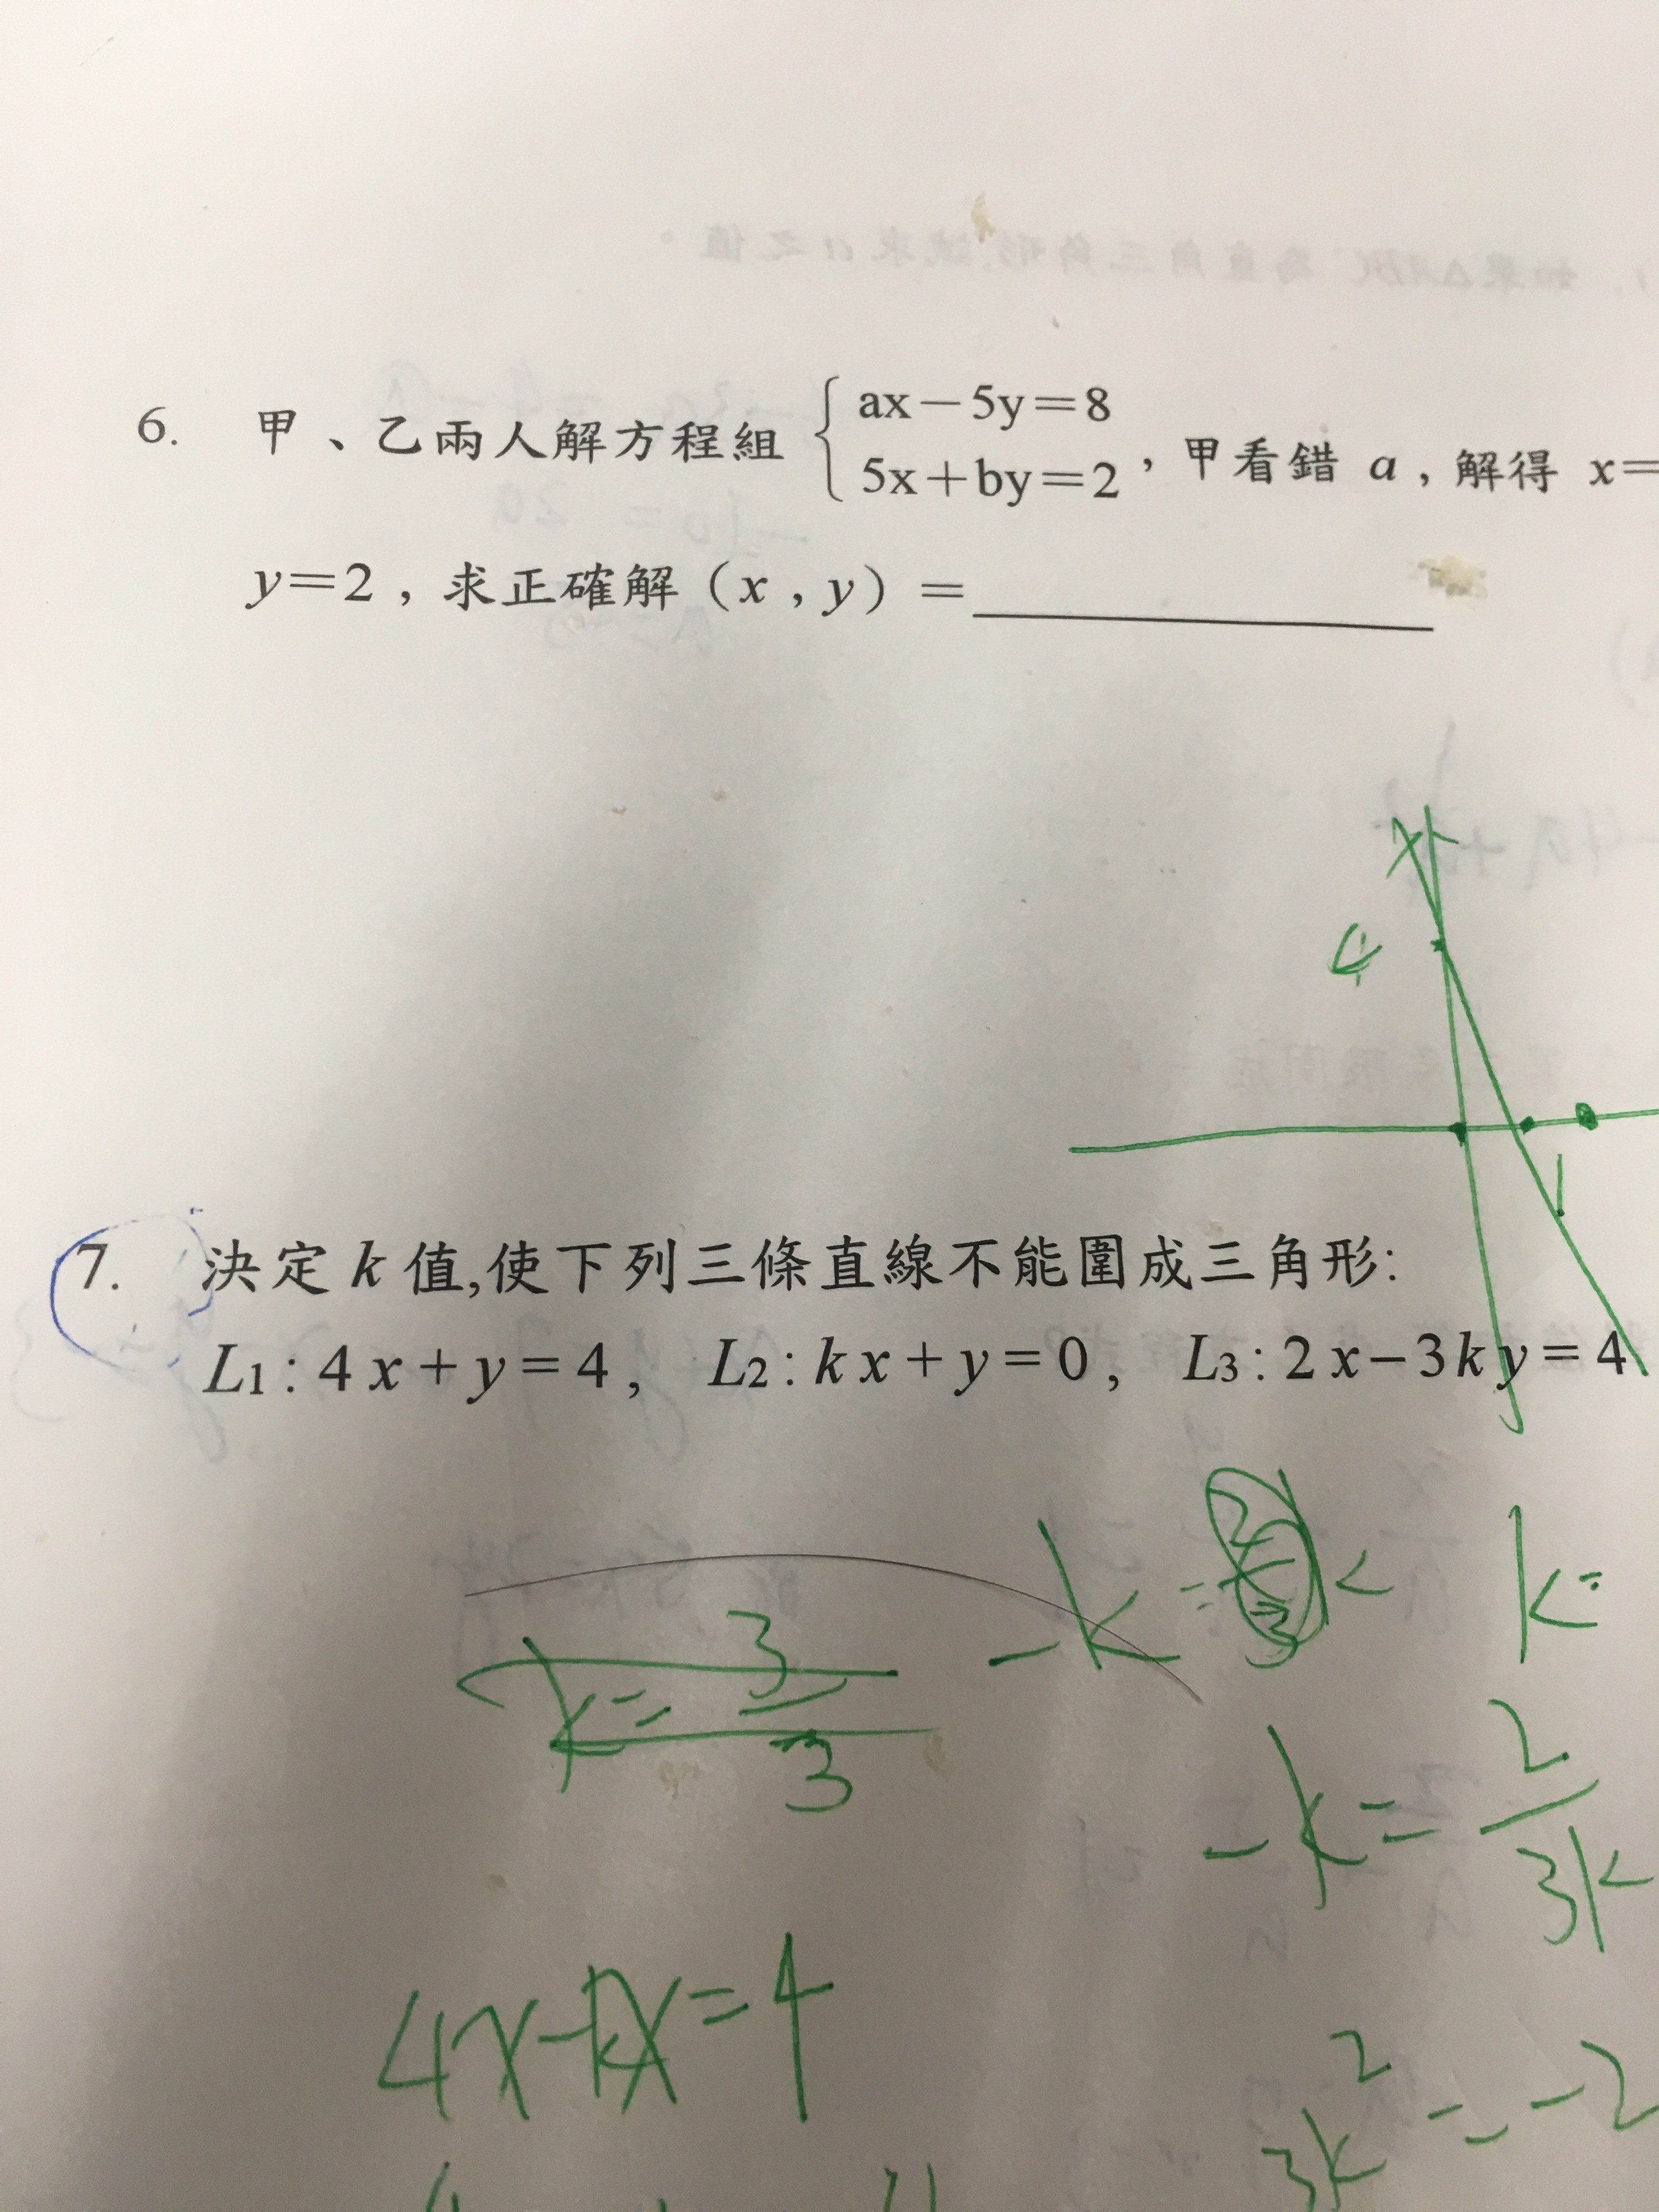 6. 甲、乙兩人解方程組 { ax－5y＝8
5x＋by＝2 ，甲看錯 a，解得 x＝
y＝2，求正確解（x , y）＝
4
1
7. 決定 k 值,使下列三條直線不能圍成三角形:
L1 : 4 x + y = 4 , L2 : k x + y = 0 , L3 : 2 x − 3 k y = 4
k = 3/3
-k =
k =
-k = 2/3k
4x - kx = 4
3k² = -2